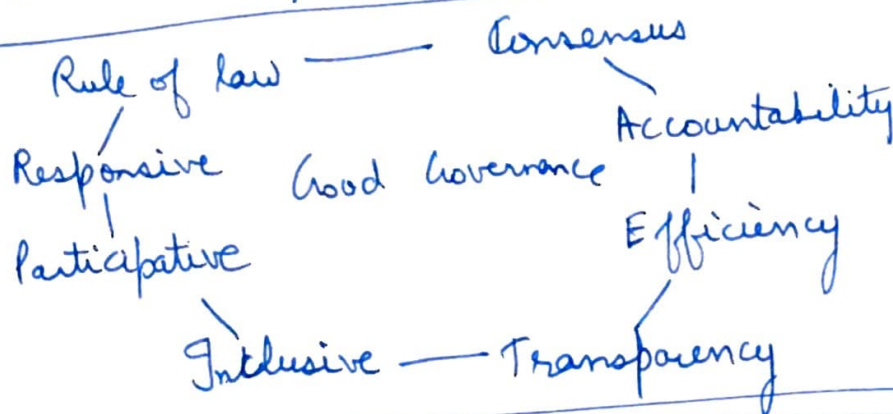 Rule of law — Consensus
Accountability
Responsive Good Governance
Efficiency
Participative
Inclusive — Transparency